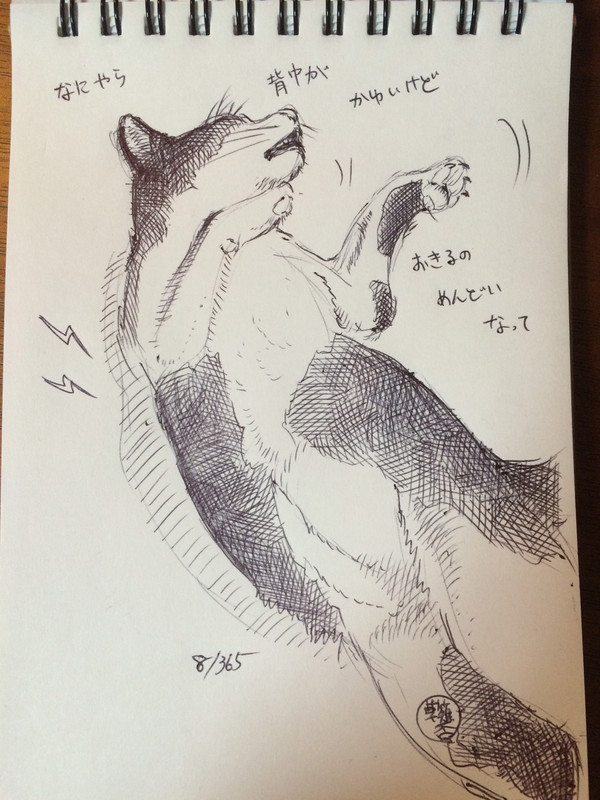 なにやら
背中が
かゆいけど
おきるの
めんどい
なって
8/365